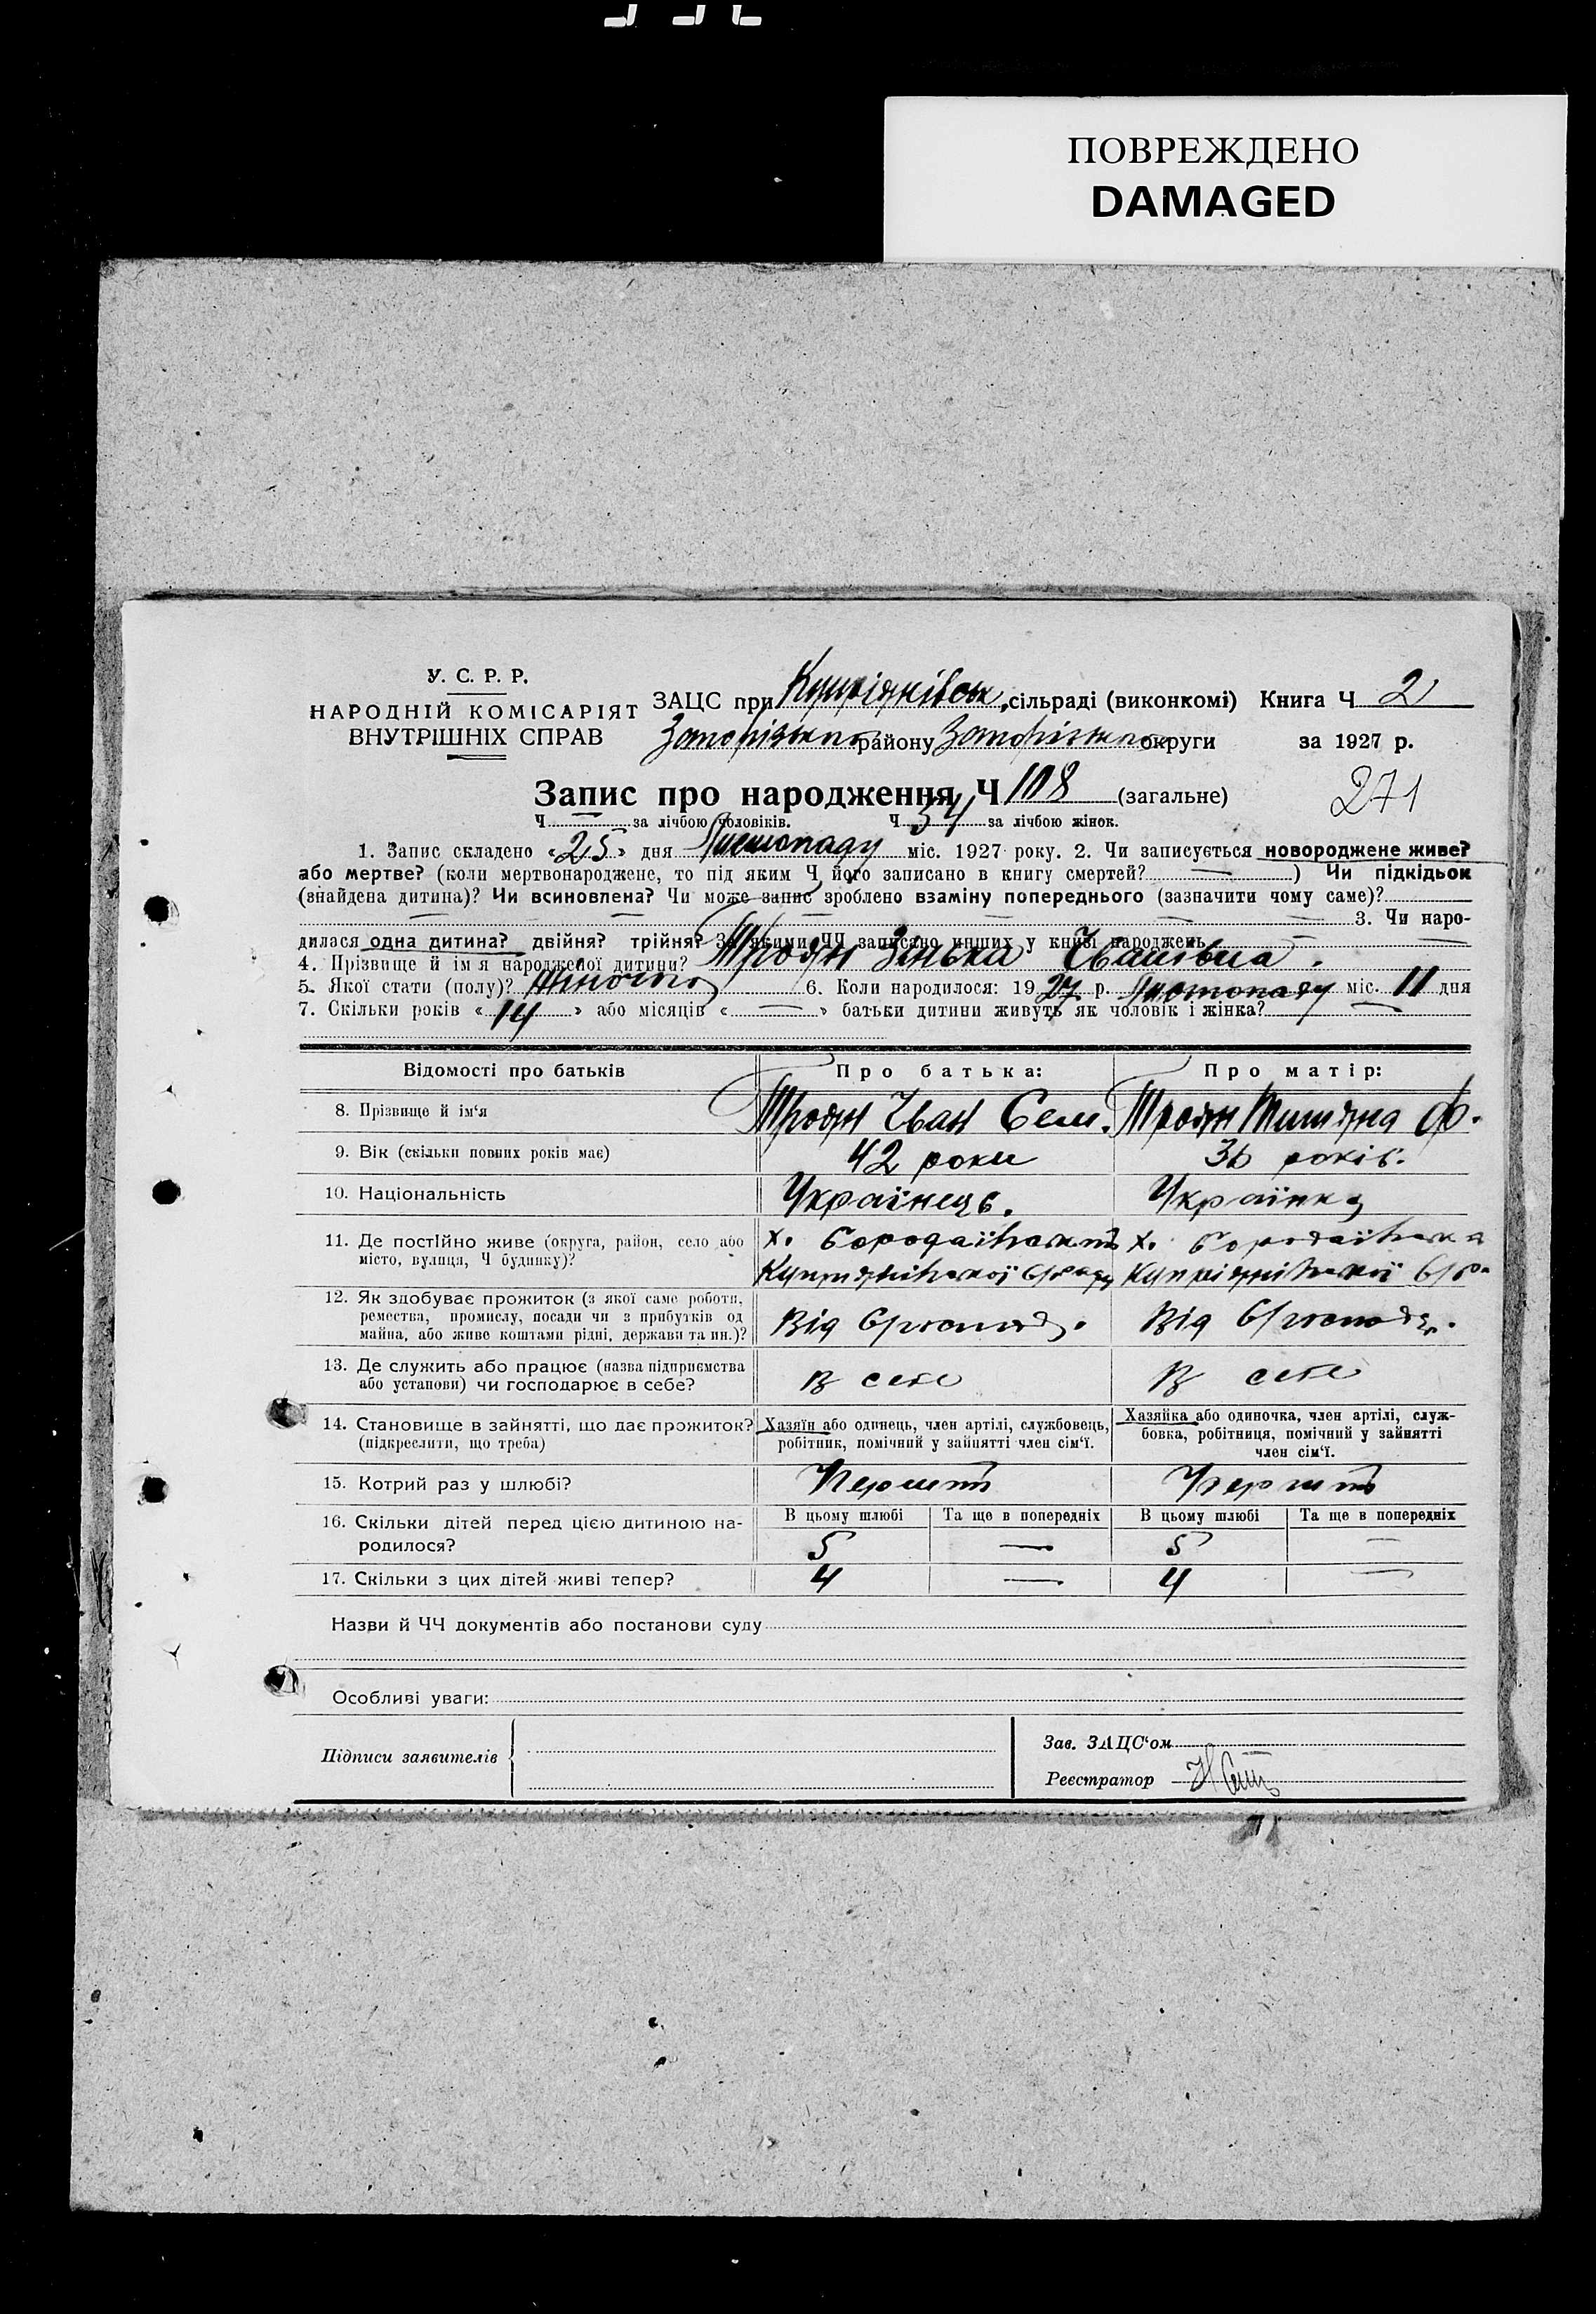 ПОВРЕЖДЕНО
DAMAGED
У. С. Р. Р.
НАРОДНІЙ КОМІСАРІЯТ
ВНУТРІШНІХ СПРАВ
ЗАЦС при Купріянівськ. сільраді (виконкомі) Книга Ч 2
Запорізького району Запорізького округи за 1927 р.
Запис про народження Ч 108 (загальне) 271
Ч — за лічбою чоловіків. Ч 54 за лічбою жінок.
1. Запис складено «25» дня Листопаду міс. 1927 року. 2. Чи записується новороджене живе?
або мертве? (коли мертвонароджене, то під яким Ч його записано в книгу смертей? — ) Чи підкідьок
(знайдена дитина)? Чи всиновлена? Чи може запис зроблено взаміну попереднього (зазначити чому саме)?
— — — — — 3. Чи наро-
дилася одна дитина? двійня? трійня? За якими ЧЧ записано инших у книзі народжень —
4. Прізвище й ім'я народженої дитини? Троян Зінька Іванівна.
5. Якої стати (полу)? Жіночого 6. Коли народилося: 1927 р. Листопаду міс. 11 дня
7. Скільки років «14» або місяців « — » батьки дитини живуть як чоловік і жінка? —
Відомості про батьків Про батька: Про матір:
8. Прізвище й ім'я Троян Іван Сем. Троян Тит'яна Ф.
9. Вік (скільки повних років має) 42 роки 36 років.
10. Національність Українець. Українка
11. Де постійно живе (округа, район, село або х. Бородаївський х. Бородаївська
місто, вулиця, Ч будинку)? Купріянівської С/ради Купріянівської С/р.
12. Як здобуває прожиток (з якої саме роботи,
ремества, промислу, посади чи з прибутків од Від С/господ. Від С/господ.
майна, або живе коштами рідні, держави та ин.)?
13. Де служить або працює (назва підприємства
або установи) чи господарює в себе? В себе В себе
14. Становище в зайнятті, що дає прожиток? Хазяїн або одинець, член артілі, службовець, Хазяйка або одиночка, член артілі, служ-
(підкреслити, що треба) робітник, помічний у зайнятті член сім'ї. бовка, робітниця, помічний у зайнятті
член сім'ї.
15. Котрий раз у шлюбі? Перший Перший
16. Скільки дітей перед цією дитиною на- В цьому шлюбі Та ще в попередніх В цьому шлюбі Та ще в попередніх
родилося? 5 — 5 —
17. Скільки з цих дітей живі тепер? 4 — 4 —
Назви й ЧЧ документів або постанови суду
Особливі уваги:
Підписи заявителів
Зав. ЗАЦС'ом
Реєстратор